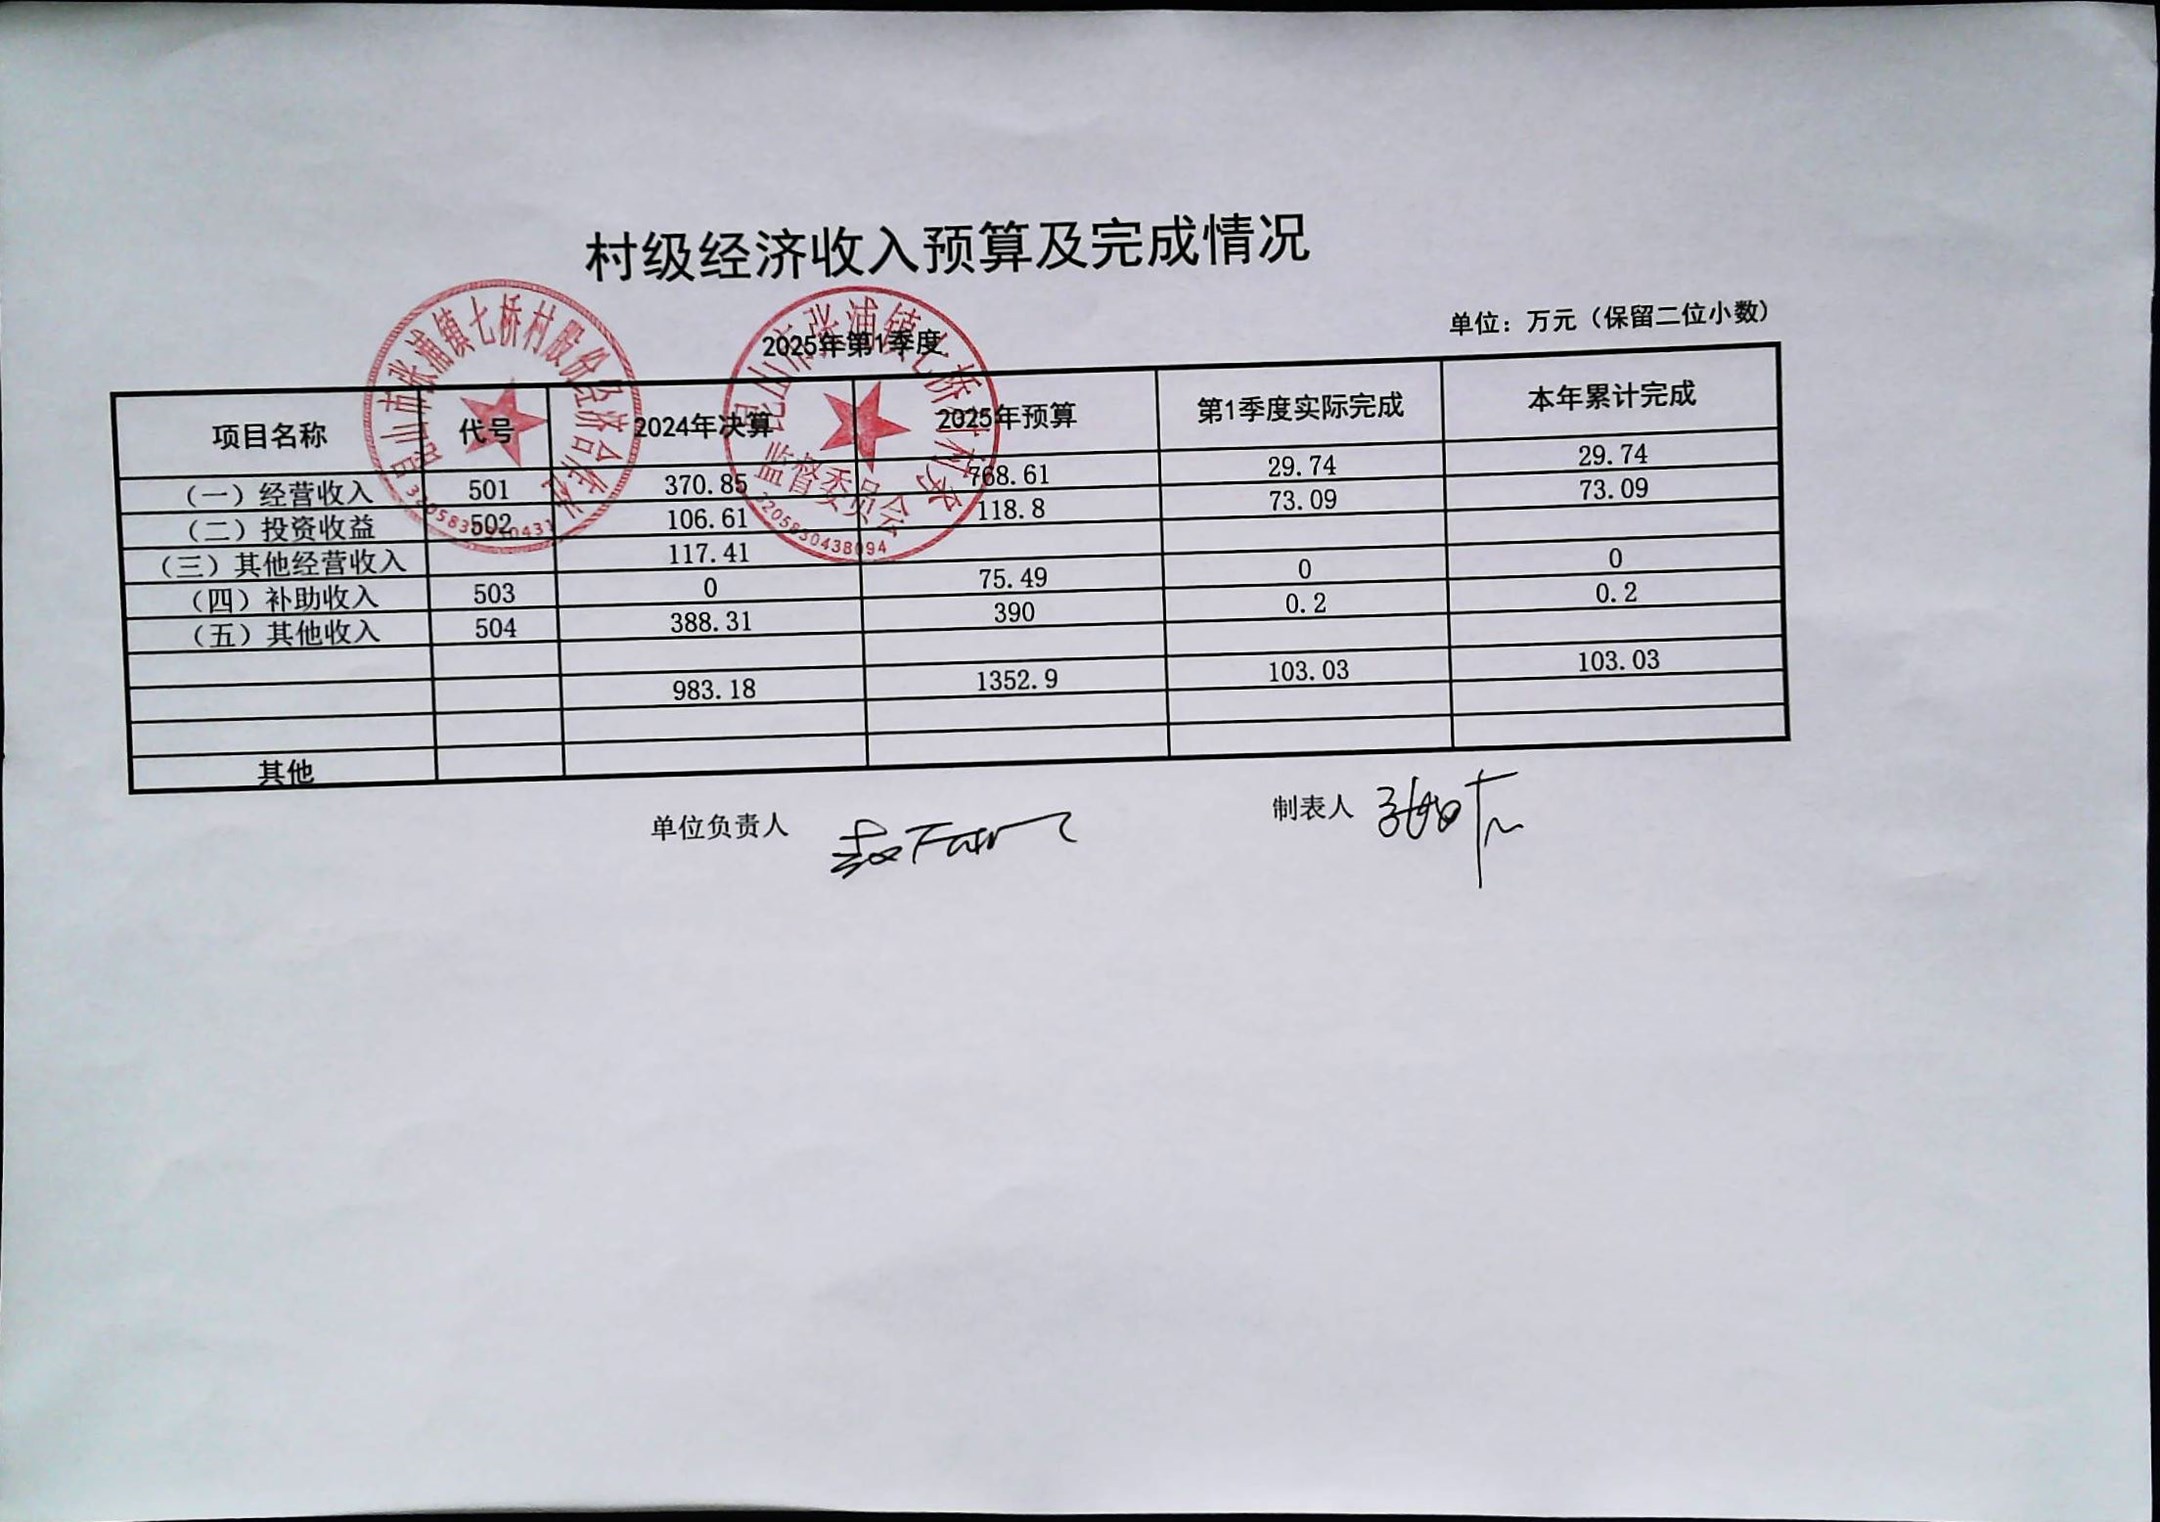 村级经济收入预算及完成情况
2025年第1季度
单位：万元（保留二位小数）
项目名称 代号 2024年决算 2025年预算 第1季度实际完成 本年累计完成
（一）经营收入 501 370.85 768.61 29.74 29.74
（二）投资收益 502 106.61 118.8 73.09 73.09
（三）其他经营收入 117.41
（四）补助收入 503 0 75.49 0 0
（五）其他收入 504 388.31 390 0.2 0.2
983.18 1352.9 103.03 103.03
其他
单位负责人 制表人
昆山市张浦镇七桥村股份经济合作社
昆山市张浦镇七桥村村务
监督委员会
3205830438094